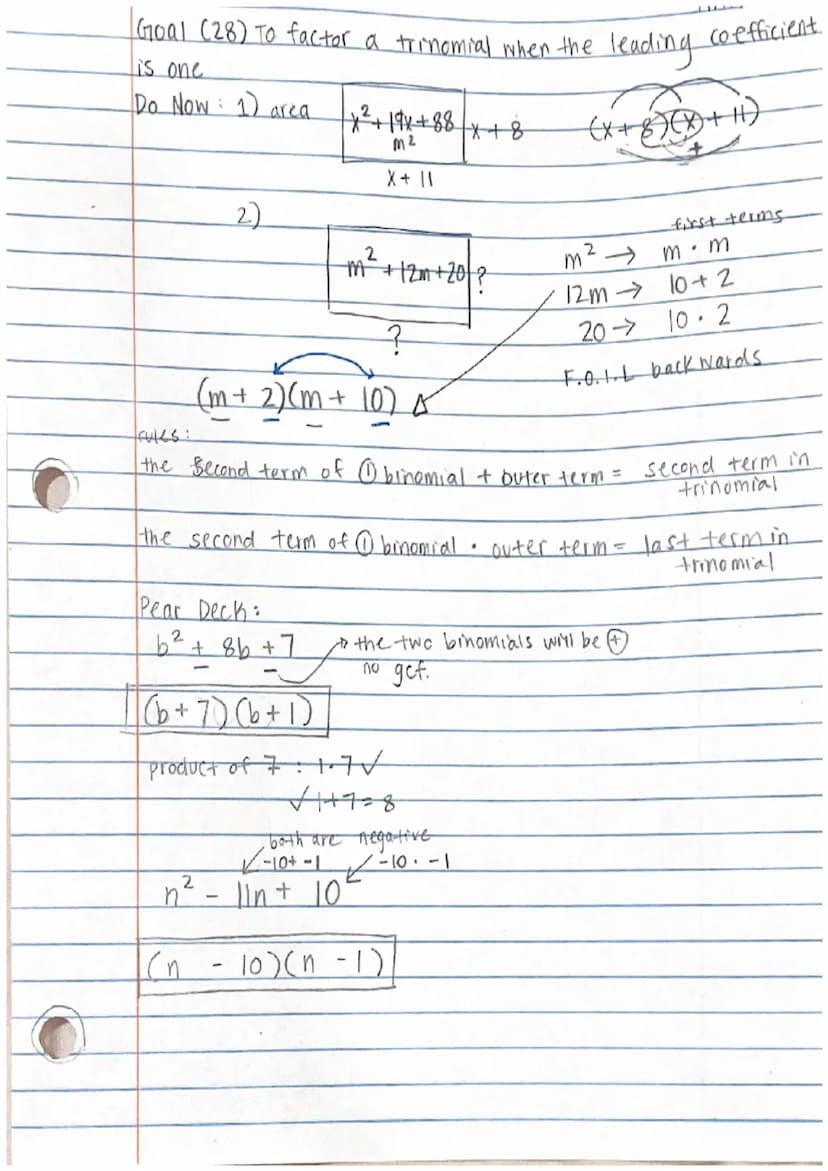 Goal (28) To factor a trinomial when the leading coefficient
is one
Do Now : 1) area
x² + 19x + 88
m²
x + 8
x + 11
(x + 8)(x + 11)
+
2)
m² + 12m + 20
?
?
first terms
m² → m · m
12m → 10 + 2
20 → 10 · 2
F.O.I.L backwards
(m + 2)(m + 10)
rules :
the second term of ① binomial + outer term = second term in
trinomial
the second term of ① binomial · outer term = last term in
trinomial
Pear Deck :
b² + 8b + 7 → the two binomials will be ⊕
no gcf.
(b + 7)(b + 1)
product of 7 : 1 · 7 ✓
✓ 1 + 7 = 8
both are negative
-10 + -1 -10 · -1
n² - 11n + 10
(n - 10)(n - 1)